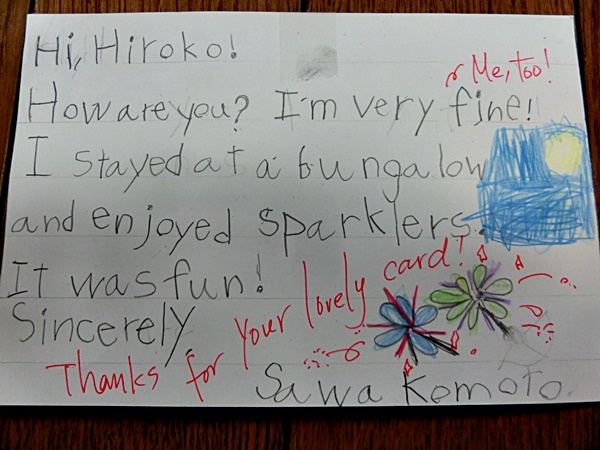 Hi, Hiroko!
Me, too!
How are you? I'm very fine!
I stayed at a bungalow
and enjoyed sparklers.
It was fun!
Sincerely
Thanks for your lovely card!
Sawa Komoto.